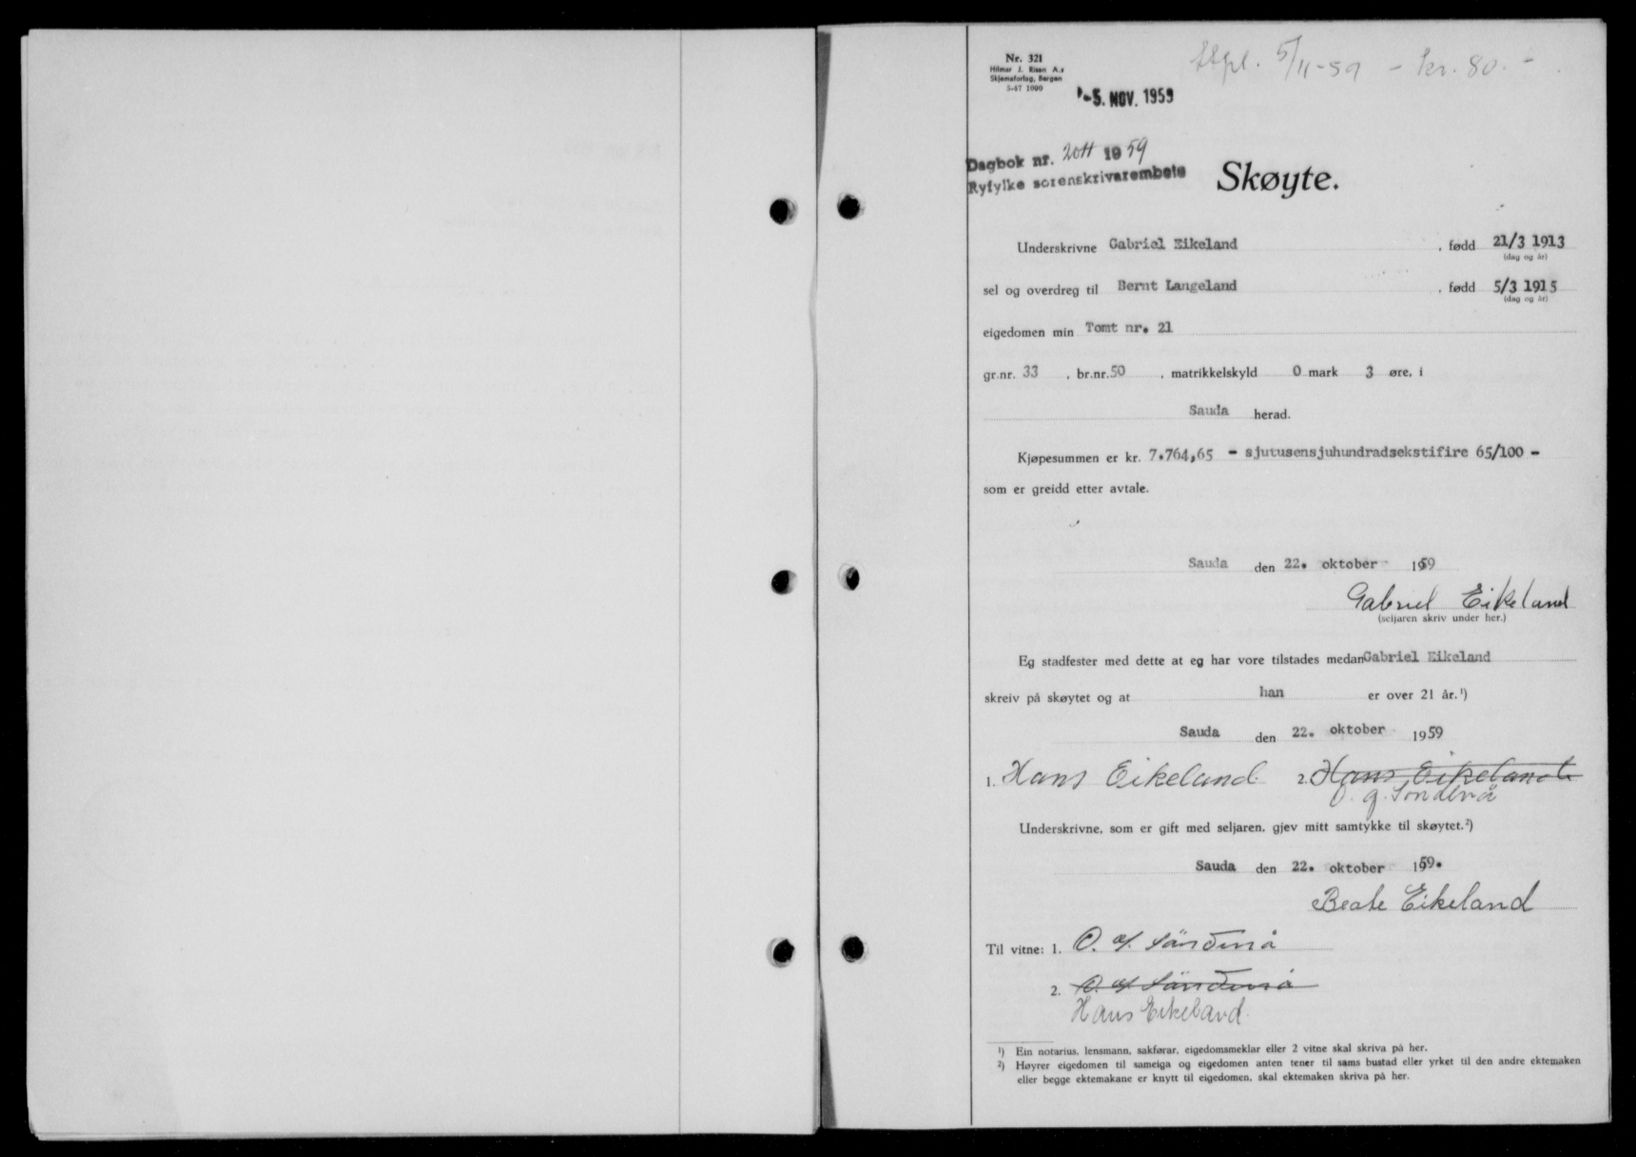 Nr. 321
Hilmar J. Risan A.s
Skjemaforlag, Bergen
5-47 1000
Stpl. 5/11-59 - kr. 80.-
-5. NOV. 1959
Dagbok nr. 2011 1959
Ryfylke sorenskrivarembete
Skøyte.
Underskrivne Gabriel Eikeland , fødd 21/3 1913
(dag og år)
sel og overdreg til Bernt Langeland , fødd 5/3 1915
(dag og år)
eigedomen min Tomt nr. 21
gr.nr. 33 , br.nr. 50 , matrikkelskyld 0 mark 3 øre, i
Sauda herad.
Kjøpesummen er kr. 7.764,65 - sjutusensjuhundradsekstifire 65/100 -
som er greidd etter avtale.
Sauda den 22. oktober 1959
Gabriel Eikeland
(seljaren skriv under her.)
Eg stadfester med dette at eg har vore tilstades medan Gabriel Eikeland
skreiv på skøytet og at han er over 21 år.¹)
Sauda den 22. oktober 1959
1. Hans Eikeland 2. Hans Eikeland
O. g. Sondenå
Underskrivne, som er gift med seljaren, gjev mitt samtykke til skøytet.²)
Sauda den 22. oktober 1959.
Beate Eikeland
Til vitne: 1. O. g. Söndenå
2. O. g. Söndenå
Hans Eikeland.
¹) Ein notarius, lensmann, sakførar, eigedomsmeklar eller 2 vitne skal skriva på her.
²) Høyrer eigedomen til sameiga og eigedomen anten tener til sams bustad eller yrket til den andre ektemaken
eller begge ektemakane er knytt til eigedomen, skal ektemaken skriva på her.